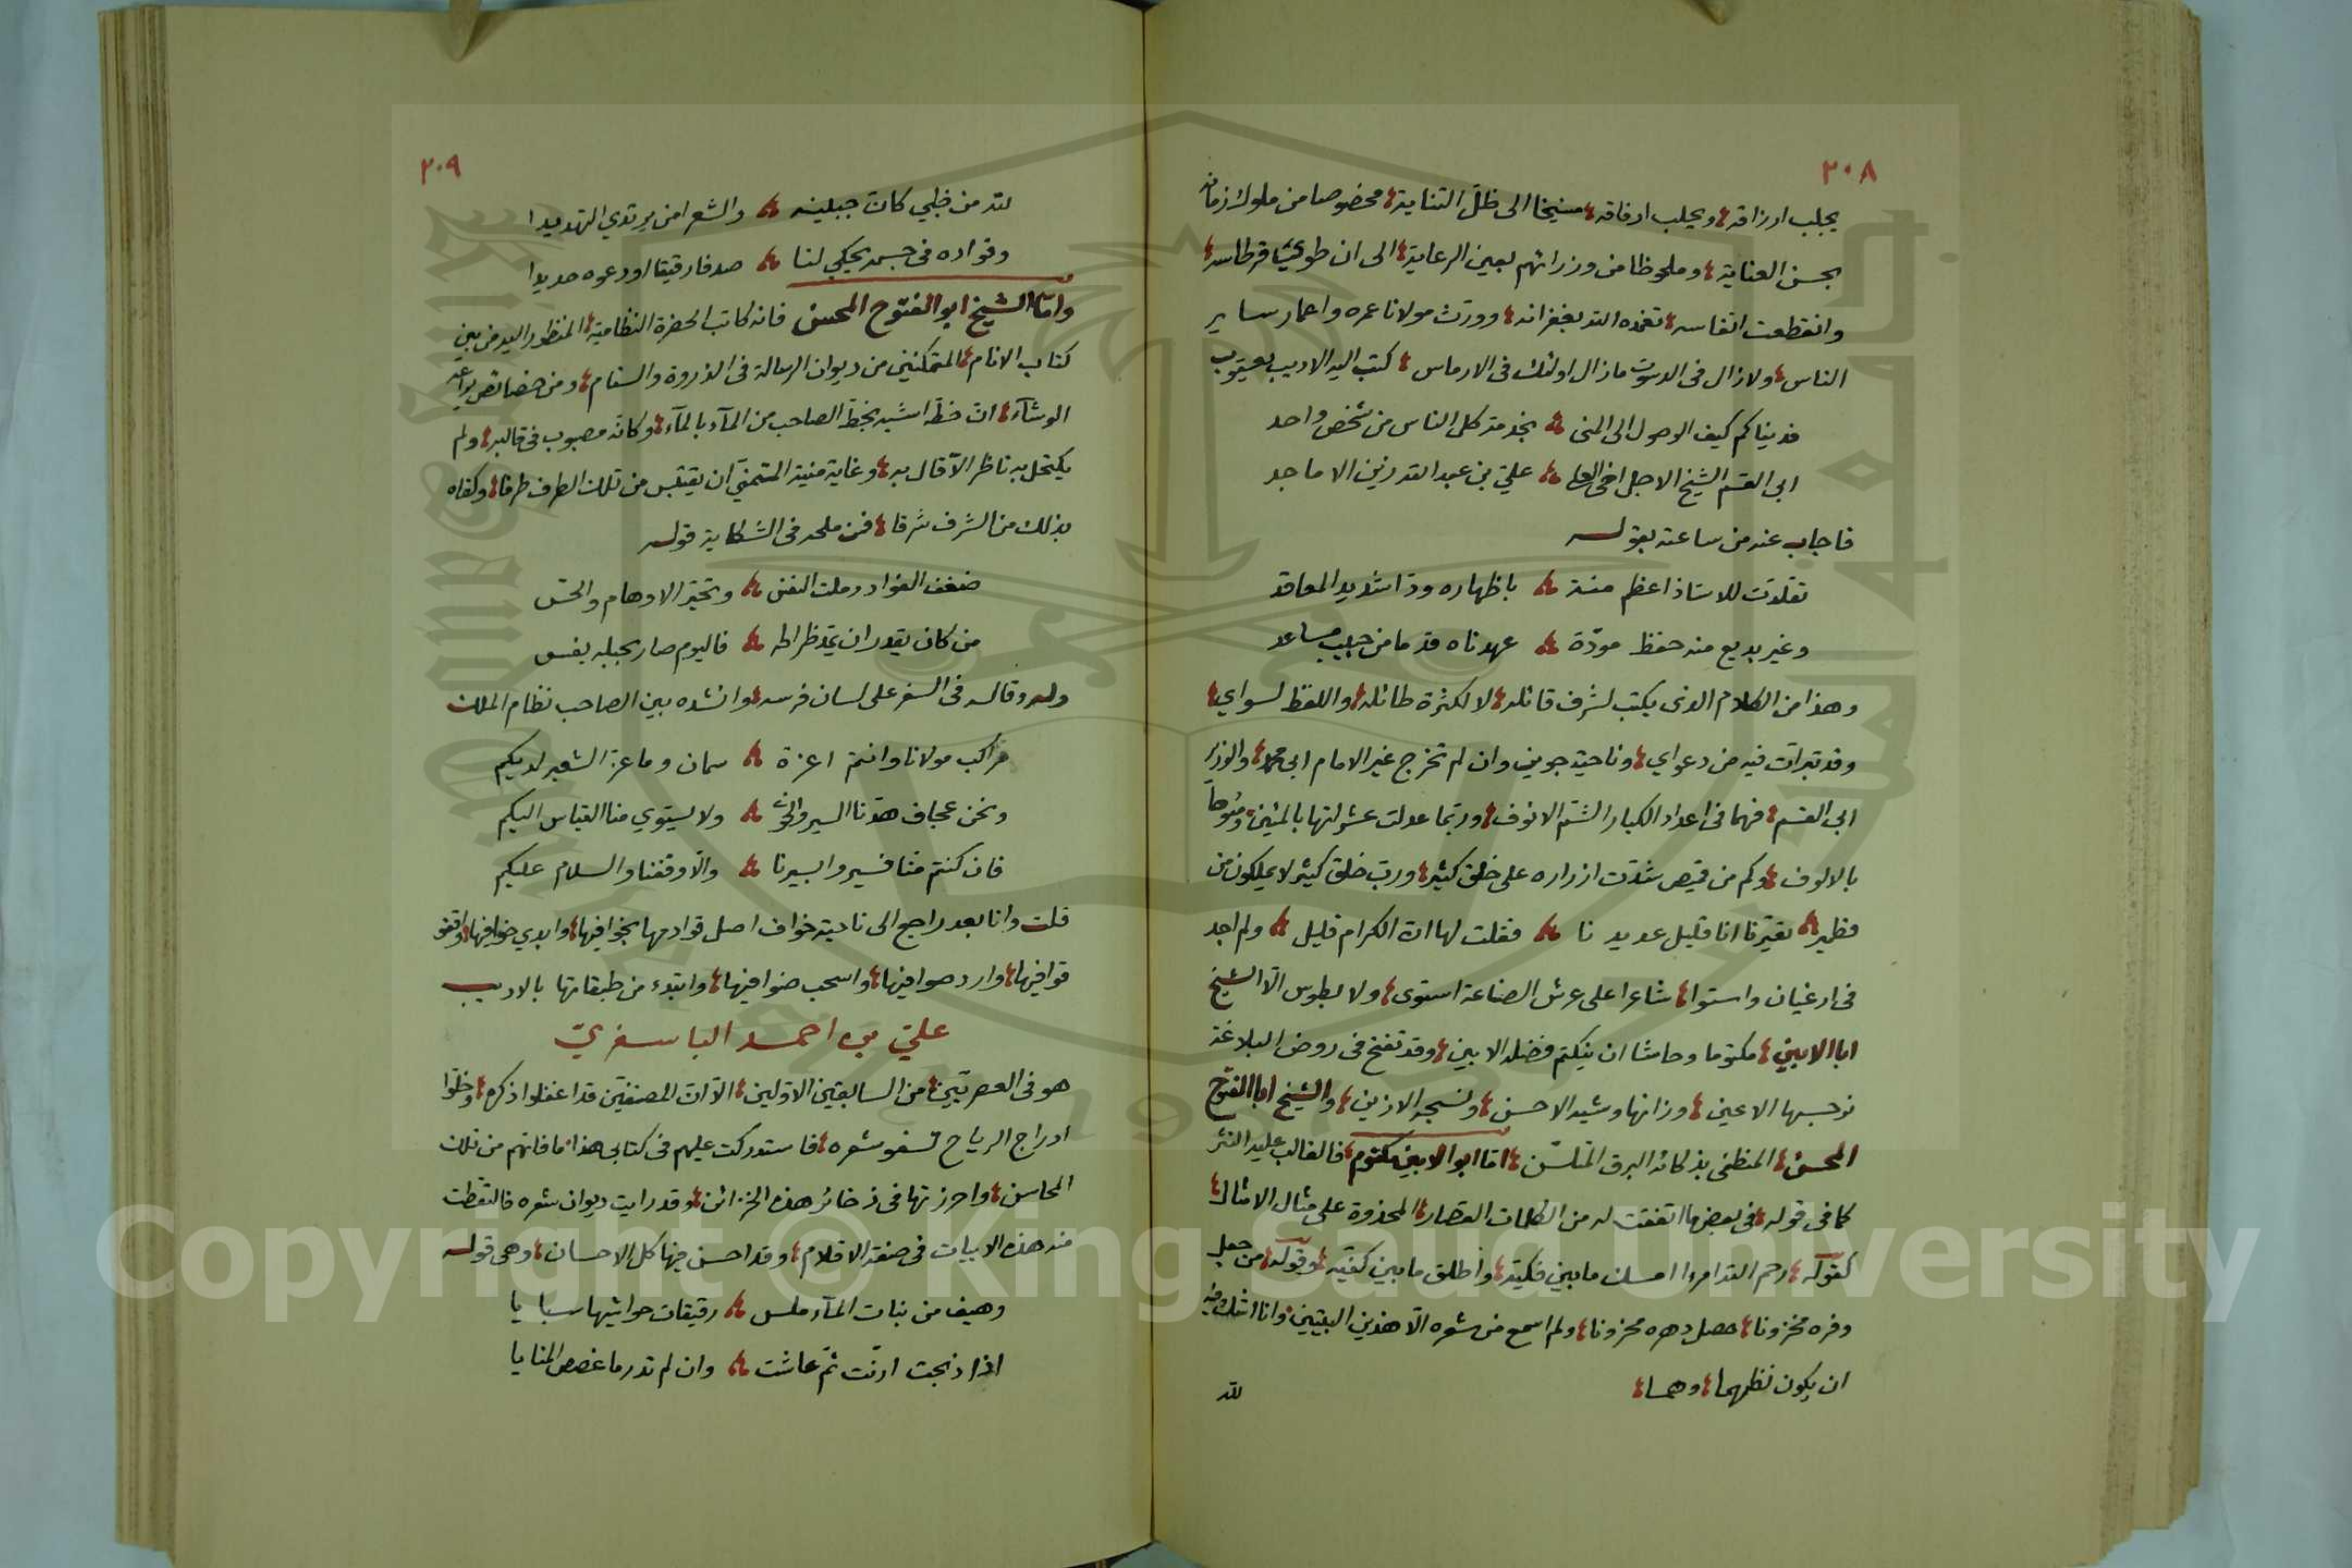 ٢٠٨
يجلب ارزاقه ويحلب ارفاقه منيخا الى ظل التناية مخصوصا من ملوك زمانه
بحسن العناية وملحوظا من وزرائهم بعين الرعاية الى ان طوي قرطاسه
وانقطعت انفاسه تغمده الله بغفرانه وورث مولانا عمره واعمار ساير
الناس ولا زال في الدسوت ما زال اولئك في الارماس كتب اليه الاديب يعقوب
فديناكم كيف الوصول الى المنى بخدمة كل الناس من شخص واحد
ابى القسم الشيخ الاجل اخى العلى علي بن عبد الله زين الاماجد
فاجاب عنه من ساعته بقوله
تقلدت للاستاذ اعظم منة باظهاره ودا شديد المعاقد
وغير بديع منه حفظ مودة عهدناه قدما من حبيب مساعد
وهذا من الكلام الذى يكتب لشرف قائله لا لكثرة طائله واللفظ لسواي
وقد تبرات فيه من دعواي وناحية جوين وان لم تخرج غير الامام ابى محمد والوزير
ابى القسم فهما في اعداد الكبار الشم الانوف وربما عدلت عشراتها بالمئين ومئوها
بالالوف وكم من قميص شدت ازراره على خلق كثير ورب خلق كثير لا يملكون من
قطمير تعيرنا انا قليل عديدنا فقلت لها ان الكرام قليل ولم اجد
فى ارغيان واستوا شاعرا على عرش الصناعة استوى ولا بطوس الا الشيخ
ابا الابين مكتوما وحاشا ان ينكتم فضله الابين وقد تفتح فى روض البلاغة
نرجسها الاعين وزانها وشيه الاحسن ونسجه الازين والشيخ ابا الفتوح
المحسن المنطفى بذكائه البرق المتلسن اما ابو الابين مكتوم فالغالب عليه النثر
كما فى قوله فى بعض ما اتفقت له من الكلمات القصار المحذوة على مثال الامثال
كقوله رحم الله امرءا امسك ما بين فكيه واطلق ما بين كفيه وقوله من جعل
وفره مخزونا حصل دهره محزونا ولم اسمع من شعره الا هذين البيتين وانا اشك فيه
ان يكون نظمهما وهما
لله
٢٠٩
لله من ظبي كان جبينه والشعر امن يرتدي التهديدا
وفواده فى جسمه يحكي لنا صدفا رقيقا اودعوه حديدا
واما الشيخ ابو الفتوح المحسن فانه كاتب الحضرة النظامية المنظور اليه من بين
كتاب الانام المتمكنين من ديوان الرسالة فى الذروة والسنام ومن خصائص يراعه
الوشاء ان خطه اشبه بخط الصاحب من الماء بالماء وكانه مصبوب فى قالبه ولم
يكتحل به ناظر الا قال به وغاية منية المتمني ان يقتبس من تلك الطرف طرفا وكفاه
بذلك من الشرف شرفا فمن ملحه فى الشكاية قوله
ضعف الفواد وملت النفس وتحير الاوهام والحس
من كان يقدر ان يمد ظراطه فاليوم صار بحبله يفسو
وله وقاله فى السفر على لسان فرسه وانشده بين الصاحب نظام الملك
مراكب مولانا وانتم اعزة سمان وما عز الشعير لديكم
ونحن عجاف هدنا السير والخوى ولا يستوي منا القياس اليكم
فان كنتم منا فسيروا بسيرنا والا وقفنا والسلام عليكم
قلت وانا بعد راجع الى ناحية خواف اصل قوادمها بخوافيها وابدي خوافيها واقفى
قوافيها وارد صوافيها واسحب ضوافيها وابتدء من طبقاتها بالاديب
علي بن احمد الباسفري
هو فى العصريين من السابقين الاولين الا ان المصنفين قد اغفلوا ذكره وخلوا
ادراج الرياح تسفو شعره فاستدركت عليهم فى كتابى هذا ما فاتهم من تلك
المحاسن واحرزتها فى ذخائر هذه الخزائن وقد رايت ديوان شعره فالتقطت
منه هذه الابيات فى صفة الاقلام وقد احسن فيها كل الاحسان وهى قوله
وهيف من بنات الماء ملس رقيقات حواشيها سبايا
اذا ذبحت ارنت ثم عاشت وان لم تدر ما غصص المنايا
Copyright © King Saud University